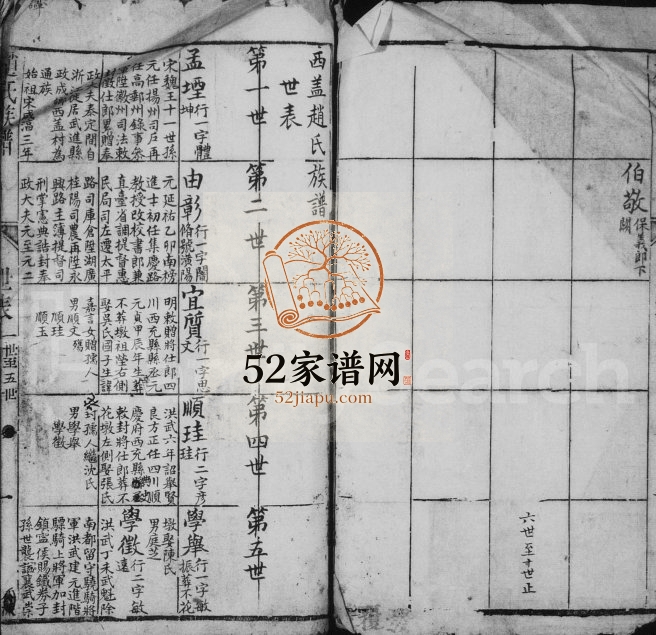 伯敬
保義郎下
闕
六世至十世止
西盖趙氏族譜
世表
第一世
第二世
第三世
第四世
第五世
孟堙
行一字體
坤
宋魏王十一世孫
元任揚州司戶再
任高郵州錄事叅
陞徽州司法敕
仕郎累贈奉
政大夫泰定間自
浙江徙居武進縣
政成鄉西盖村為
通族
始祖宋咸淳三年
由彰
行一字闇
脩號濱陽
元延祐乙卯南榜
進士初任集慶路
教授改校書郎兼
直臺省調提督惠
民局司左遷太平
路司庫倉陞湖廣
桂陽司農再陞永
興路主簿提督司
刑掌憲典誥封奉
政大夫元至元二
宜質
行一字思
文
明敕贈將仕郎四
川西充縣縣丞元
元貞甲辰年生葬
不葬墩祖塋右側
娶吳氏國子生諱
嘉言女贈孺人
男順文殤
順珪
順玉
順珪
行二字彥
珪
洪武六年詔舉賢
良方正任四川順
慶府西充縣縣丞
敕封將仕郎葬不
花墩左側娶張氏
封孺人繼沈氏
男學舉
學徵
學舉
行一字敏
振葬不花
墩娶陳氏
男庭芝
學徵
行二字敏
遠
洪武丁未武魁除
南都留守驍騎將
軍洪武建元進階
驃騎上將軍加封
鎮寧侯賜鐵券子
孫世襲謚襄武崇
世表
一世至五世
一
52家谱网
52jiapu.com